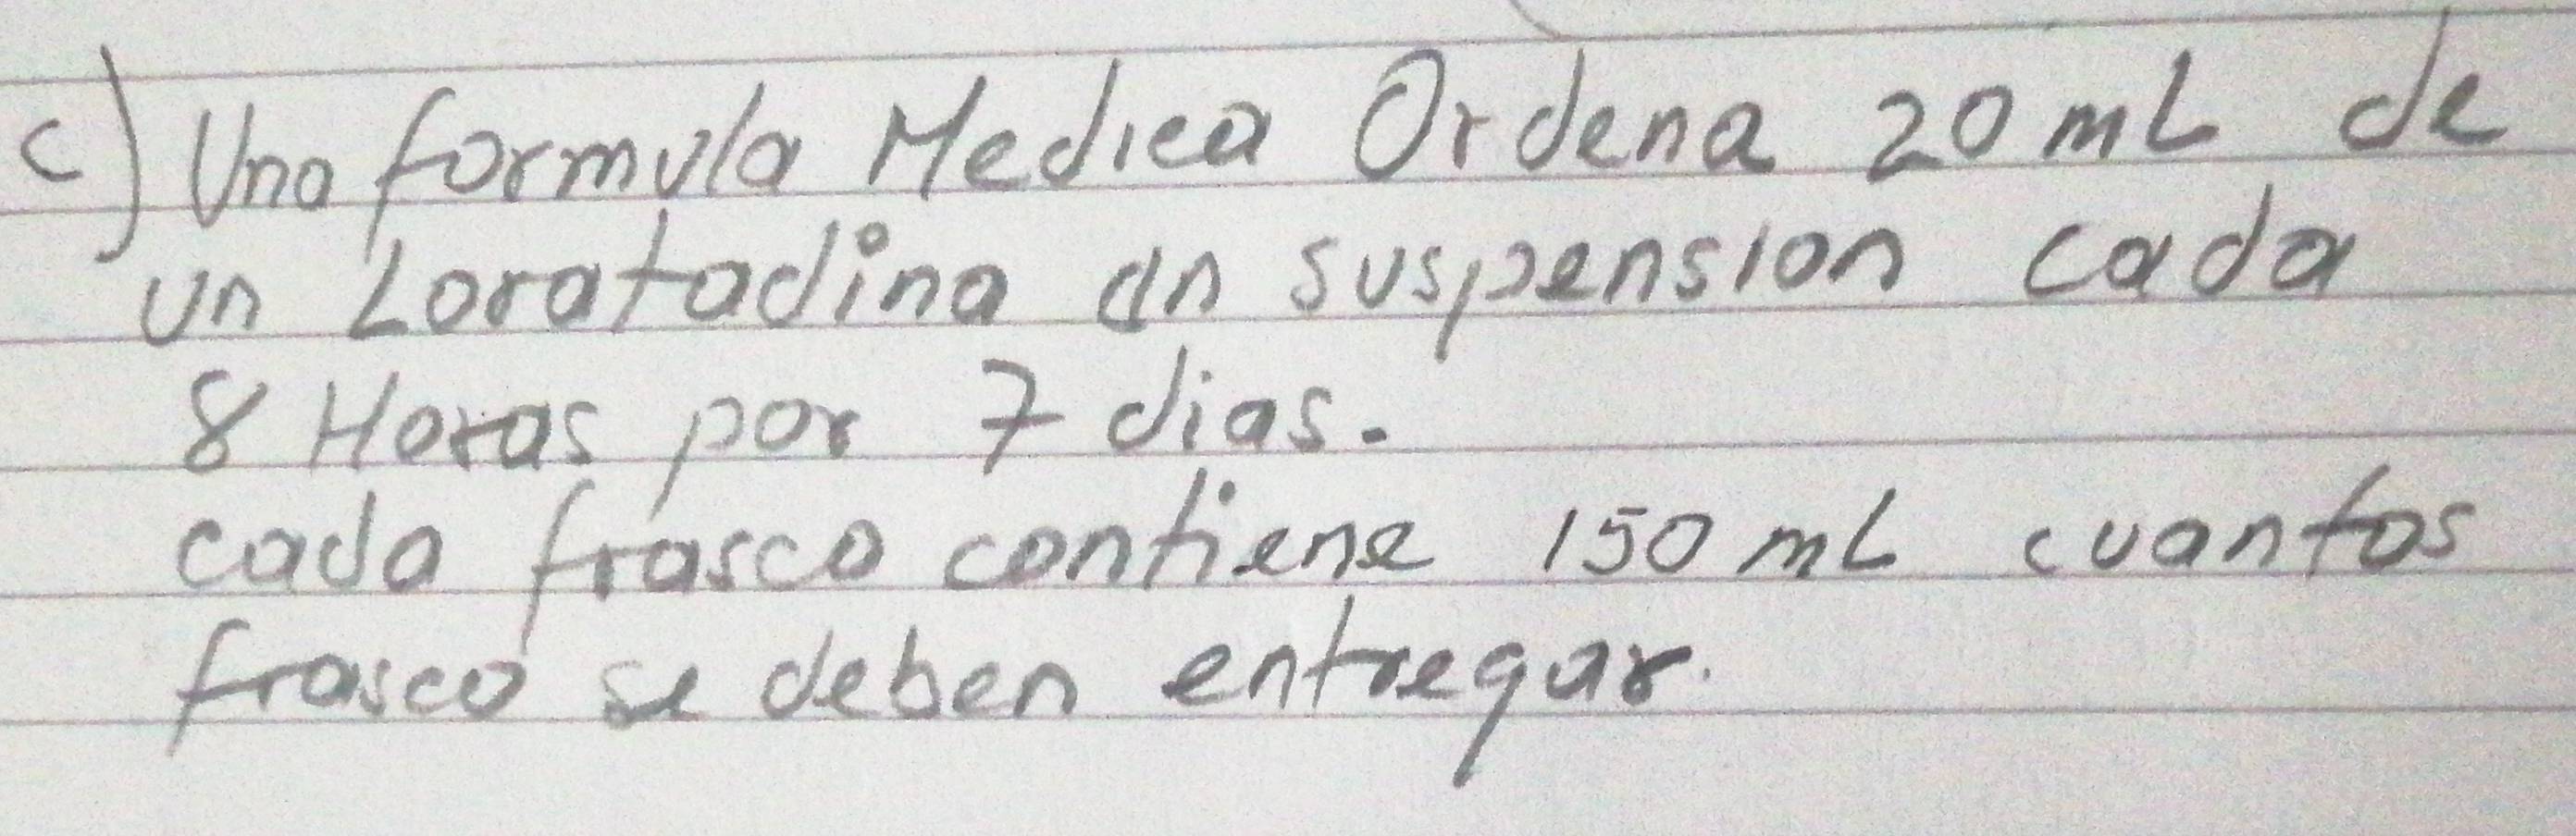 c) Una formula Medica Ordena 20 mL de
un Loratadina en suspension cada
8 Horas por 7 dias.
cada frasco contiene 150 mL cuantos
frasco se deben entregar.